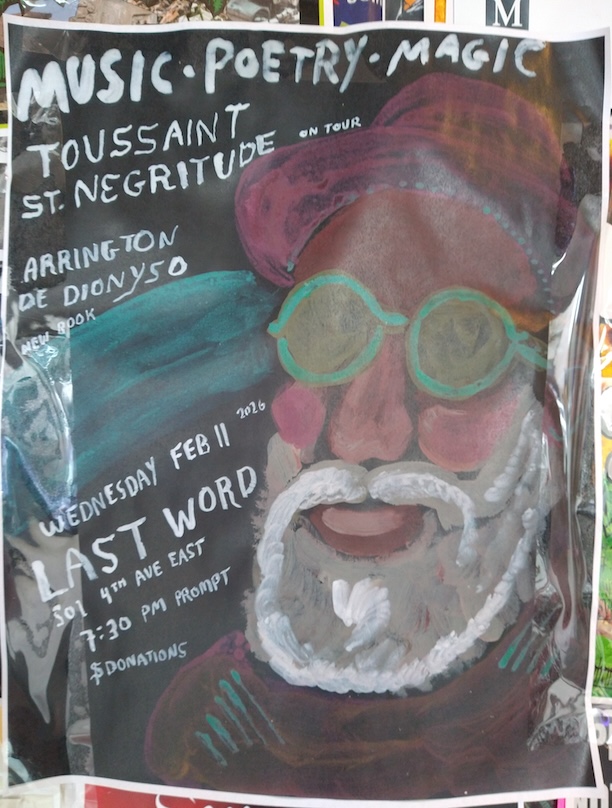 M
MUSIC · POETRY · MAGIC
TOUSSAINT
ST. NEGRITUDE ON TOUR
ARRINGTON
DE DIONYSO
NEW BOOK
WEDNESDAY FEB 11 2026
LAST WORD
501 4TH AVE EAST
7:30 PM PROMPT
$DONATIONS